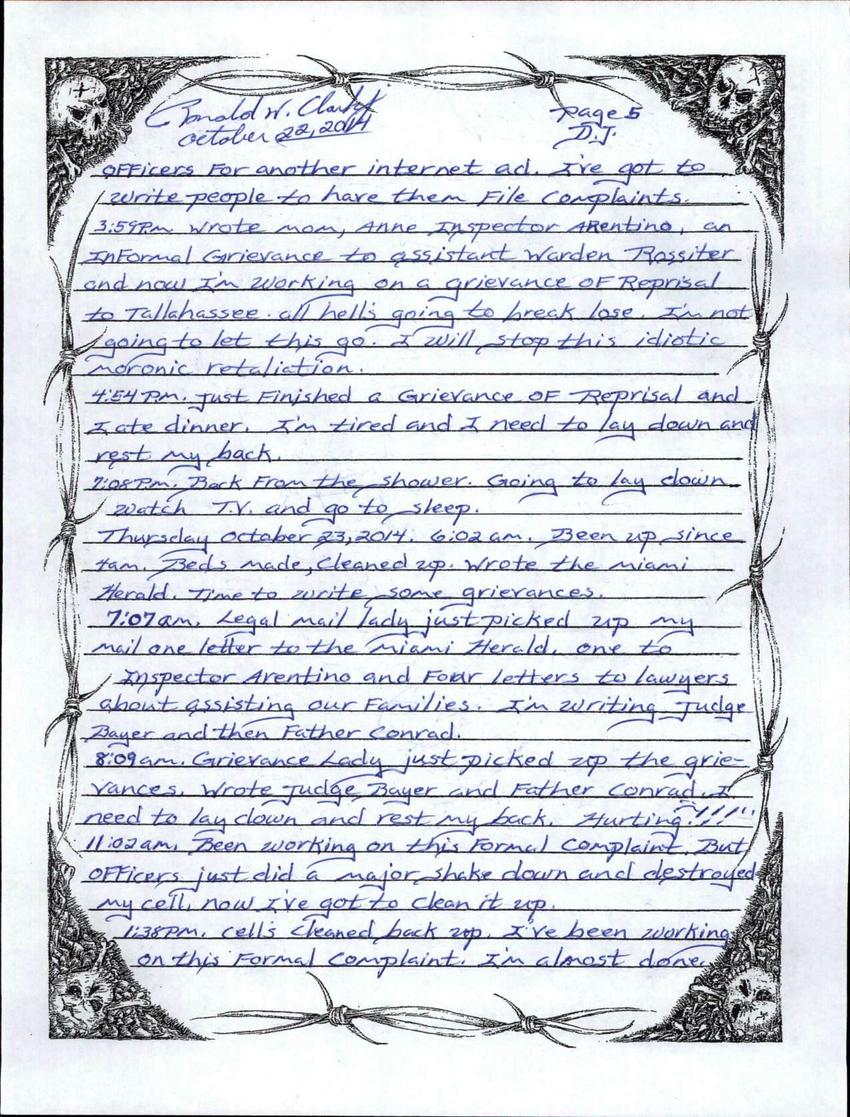 Ronald W. Clark Jr
October 22, 2014
Page 5
D.J.
officers for another internet ad. I've got to
write people to have them file complaints.
3:59pm. wrote mom, Anne, Inspector Arentino, an
Informal Grievance to assistant Warden Rossiter
and now I'm working on a grievance of Reprisal
to Tallahassee. all hell's going to break lose. I'm not
going to let this go. I will stop this idiotic
moronic retaliation.
4:54pm. just finished a Grievance of Reprisal and
I ate dinner. I'm tired and I need to lay down and
rest my back.
7:08pm. Back from the shower. Going to lay down
watch T.V. and go to sleep.
Thursday October 23, 2014. 6:02am. Been up since
4am. Beds made, cleaned up. Wrote the miami
Herald. Time to write some grievances.
7:07am. Legal mail lady just picked up my
mail one letter to the Miami Herald, one to
Inspector Arentino and Four letters to lawyers
about assisting our Families. I'm writing Judge
Bayer and then Father Conrad.
8:09am. Grievance Lady just picked up the grie-
vances. Wrote Judge Bayer and Father Conrad. I
need to lay down and rest my back. Hurting!!!!!
11:02am. Been working on this Formal Complaint. But
officers just did a major shake down and destroyed
my cell, now I've got to clean it up.
1:38pm. cell's cleaned back up. I've been working
on this Formal Complaint. I'm almost done.